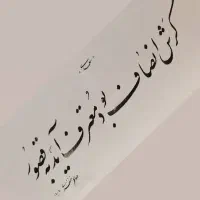 گرش انصاف بود معترف آید به قصور